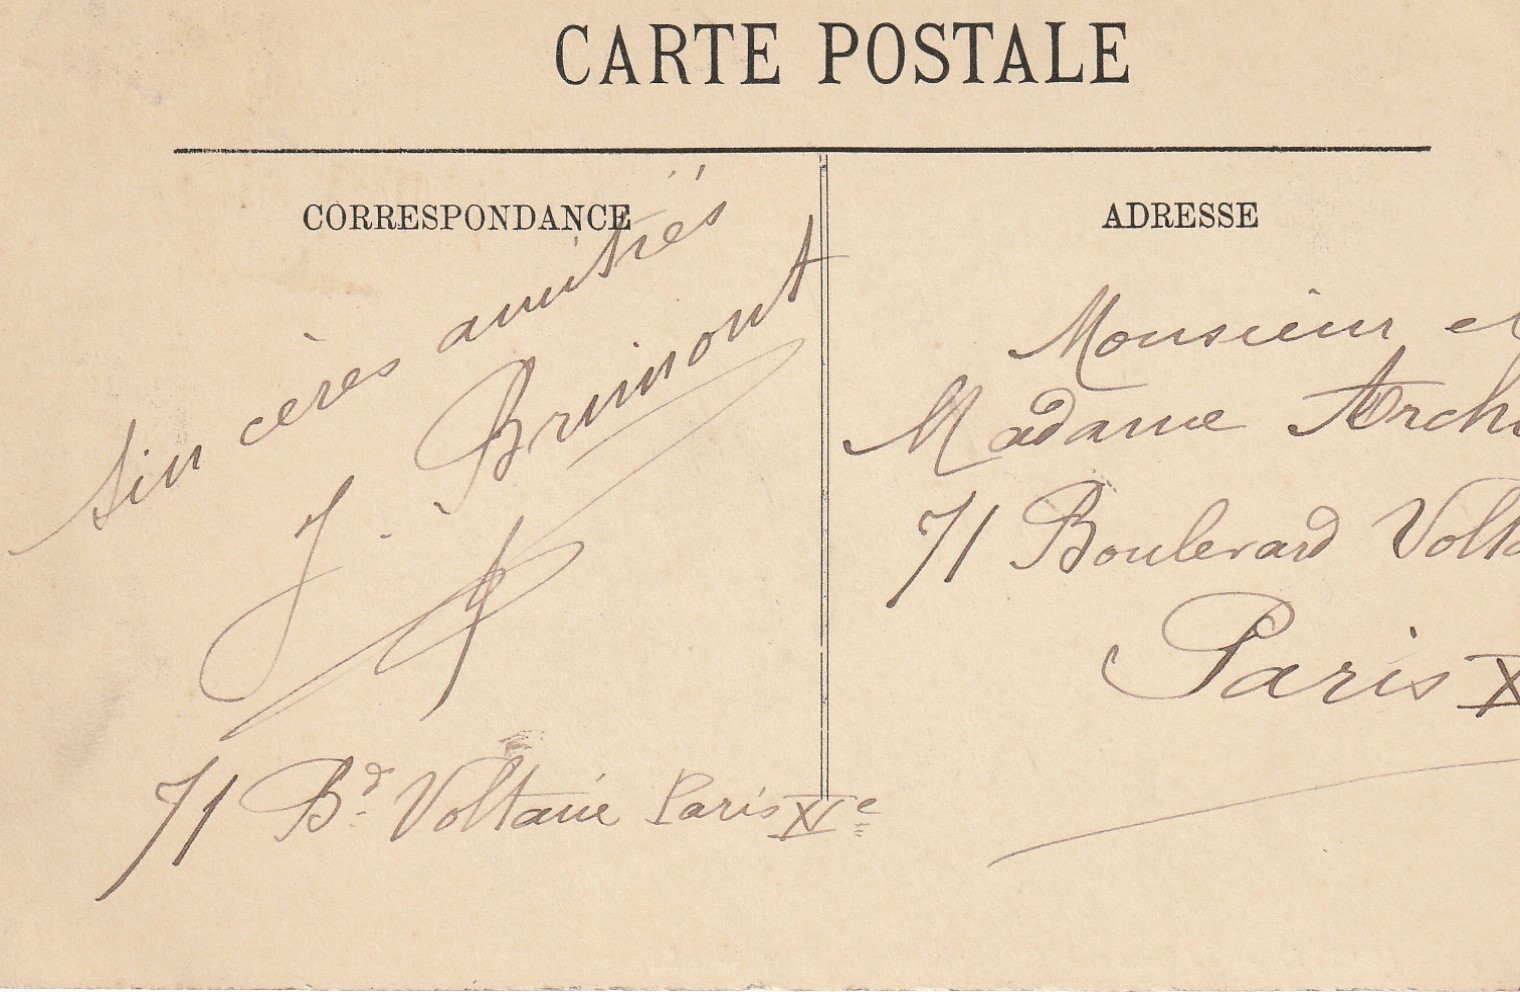 CARTE POSTALE
CORRESPONDANCE
Sincères amitiés
J. Brimont
71 Bd Voltaire Paris XIe
ADRESSE
Monsieur et
Madame Arch
71 Boulevard Volta
Paris X